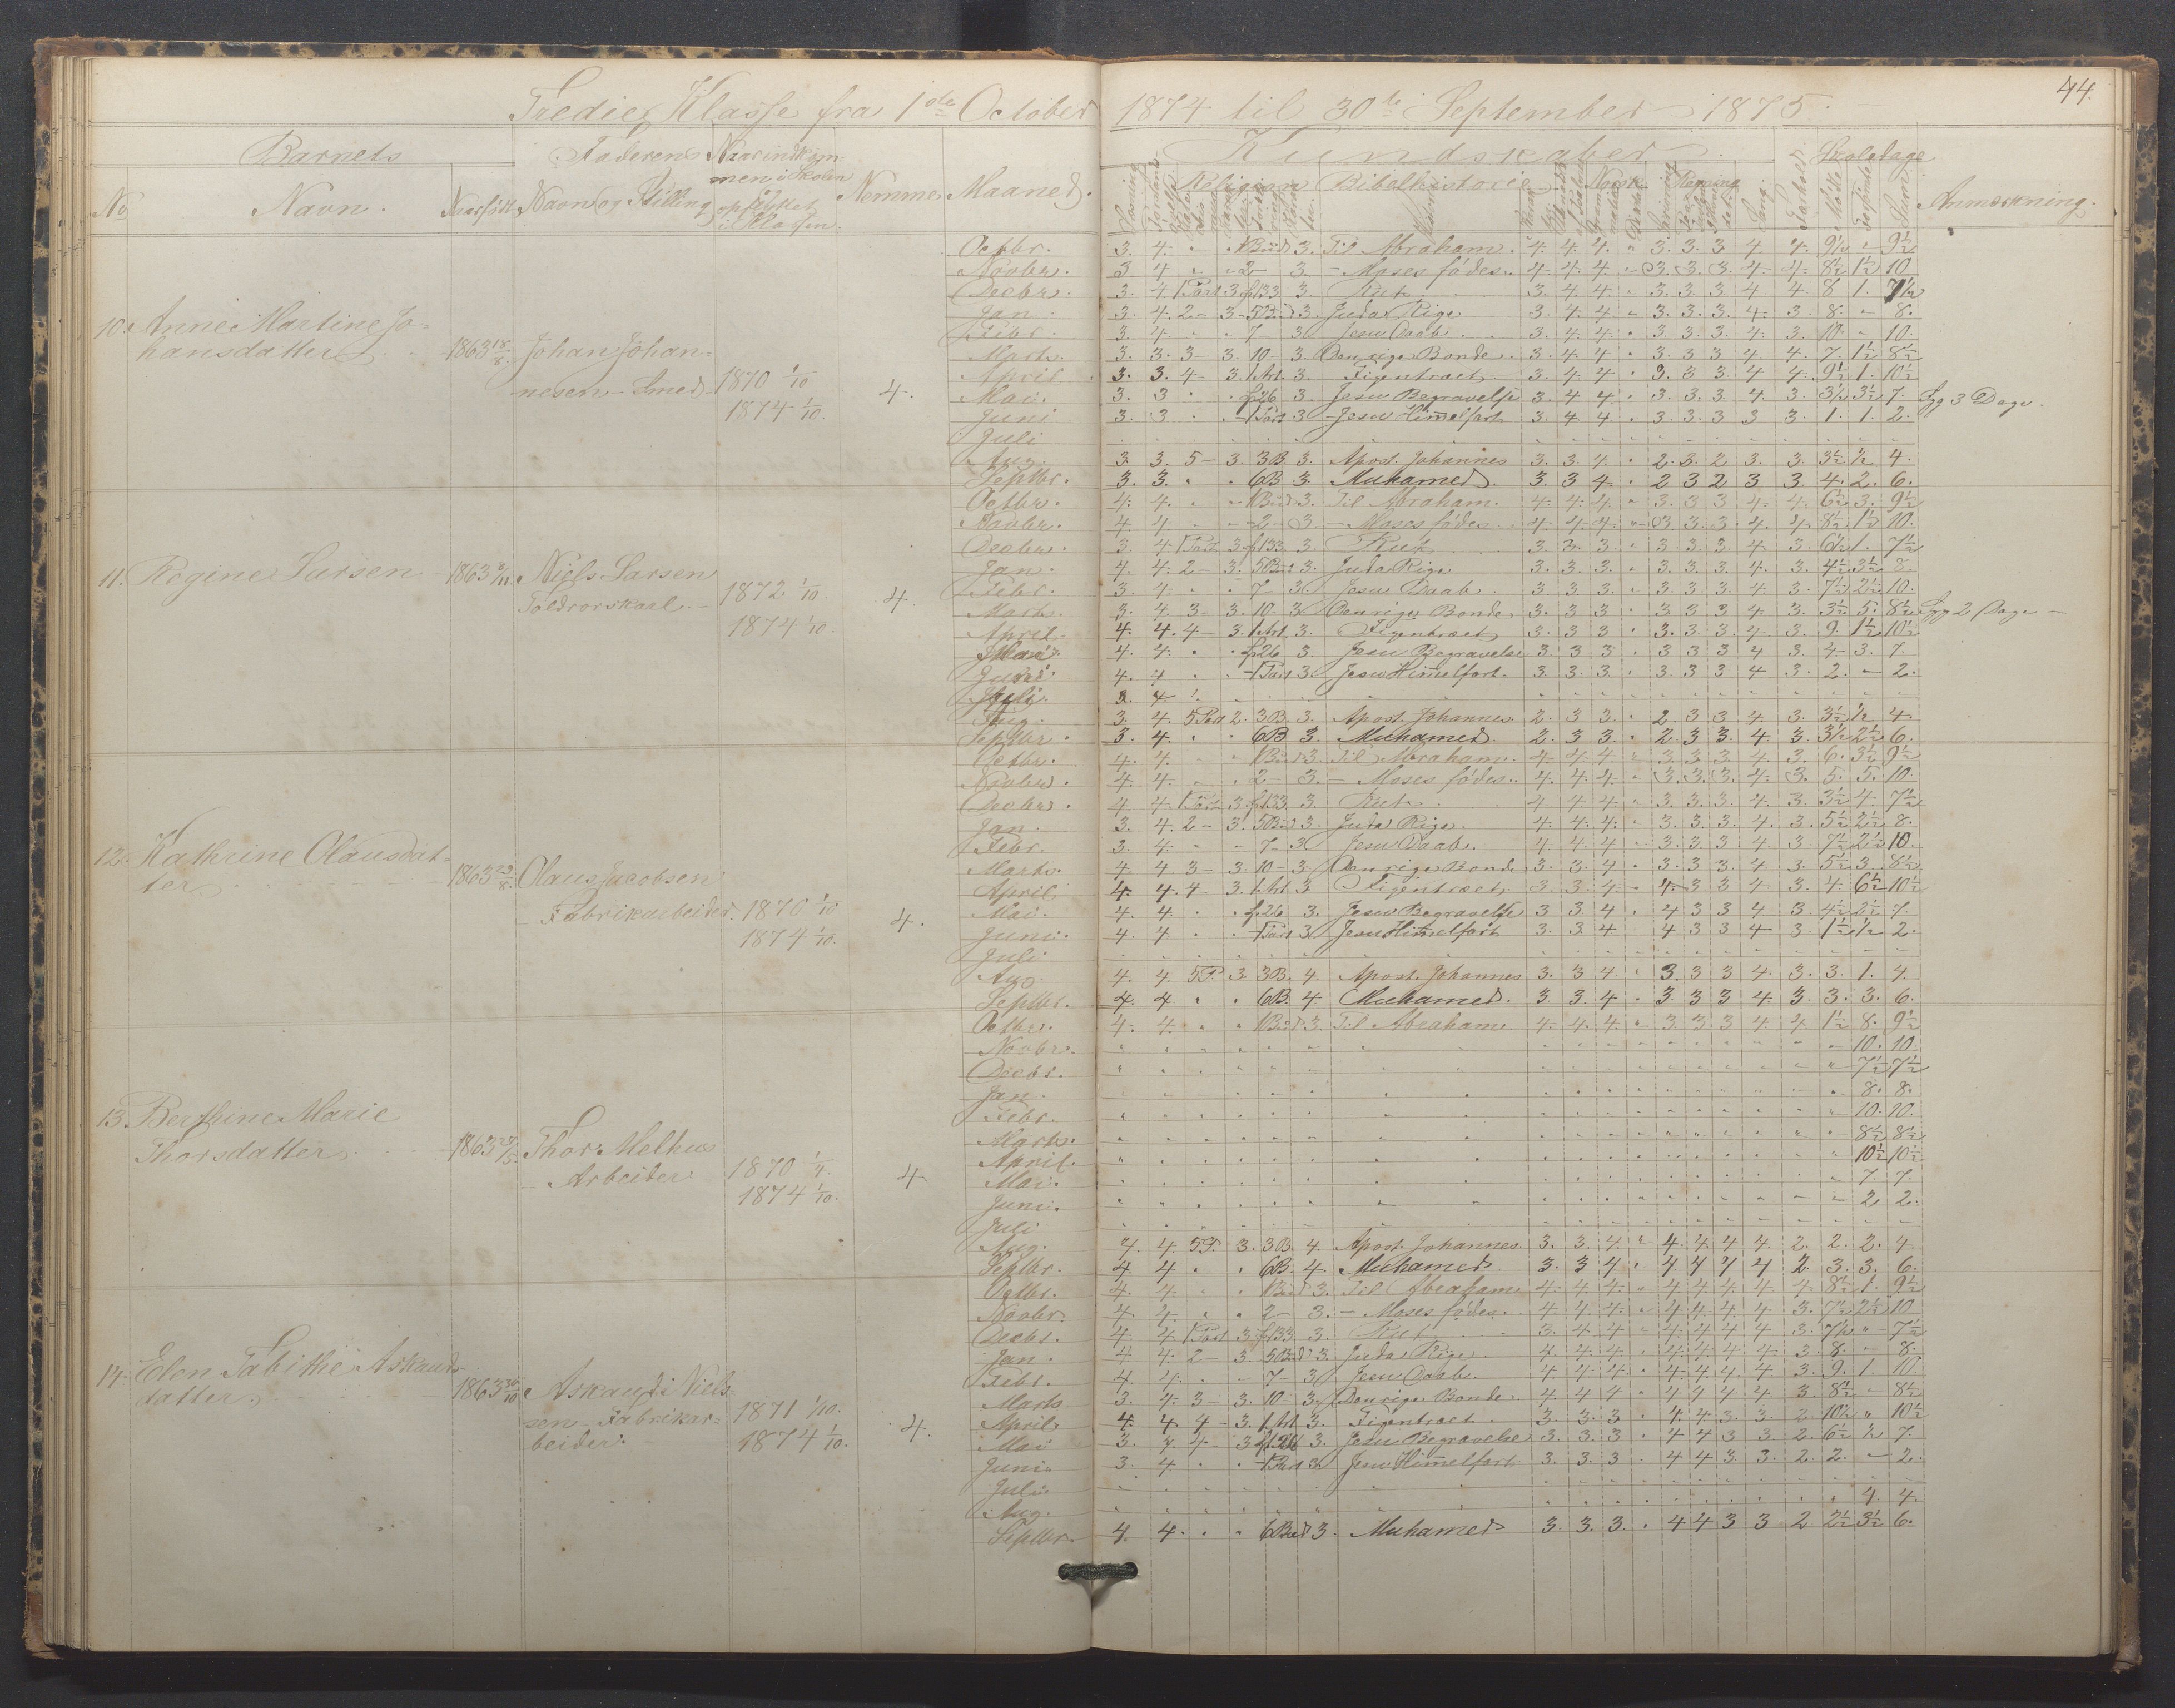 44.
Tredie Klasse fra 1ste October 1874 til 30te September 1875.
Barnets Faderens Naar indkom- Kundskaber Skoledage
men i Skolen Religion Bibelhistorie Norsk Regning
No Navn. Naar født Navn og Stilling opflyttet Nemme Maaned. Anmærkning.
i Klassen.
Octbr. 3. 4. 3. Til Abraham. 4. 4. 4. " 3. 3. 3 4 4. 9½ " 9½
Novbr. 3 4 2 - 3. - Moses fødes. 4. 4. 4. 3. 3. 3. 4. 4. 8½ 1½ 10
Decbr. 3. 4 1 Part 3. 133 3. Rut 3. 4 4 3. 3. 3 4 4. 8 1. 7½
Jan. 3. 4. 2 - 3. 3 Juda Rige 3 4. 4 3. 3. 3. 4. 3. 8. 8.
Febr. 3. 4 7 3. Jesu Daab. 3. 4. 4. 3. 3. 3. 4 3. 10. 10.
Marts. 3. 3. 3 - 3. 10 - 3. Den rige Bonde. 3. 4. 4 3. 3 3 4 4. 7. 1½ 8½
10. Anne Martine Jo-
hansdatter 1863 18/8. Johan Johan-
nesen - Smed 1870 1/10
1874 1/10. 4.
April 3. 3. 4 - 3. 1 Art. 3. Figentræet 3. 4 4 3. 3 3. 4 4. 9½ 1. 10½
Mai. 3. 3 26 3. Jesu Begravelse 3 4 4. 3. 3. 3. 4 3. 3½ 3½ 7. Syg 3 Dage.
Juni 3. 3 1 Part 3 - Jesu Himmelfart 3. 4 4 3. 3 3. 3 3. 1. 1. 2.
Juli
Aug. 3. 3. 5 - 3. 3B. 3. Apost. Johannes 3. 3. 4. 2. 3. 2 3. 3. 3½ ½ 4.
Septbr. 3. 3. 6B 3. Muhamed 3. 3 4. 2 3 2 3 3. 4. 2. 6.
Octbr. 4. 4. 3. Til Abraham. 4. 4. 4. 3. 3 3 4. 4. 6½ 3. 9½
Novbr. 4. 4 - 2 - 3. - Moses fødes 4. 4. 4. 3 3. 3 4 4 8½ 1½ 10.
Decbr. 3. 4. 1 Part 3. 133. 3. Rut 3. 3. 3. 3 3. 3 4. 3. 6½ 1. 7½
11. Regine Larsen 1863 8/11. Niels Larsen
Toldrorskarl. 1872 1/10.
1874 1/10. 4.
Jan. 4. 4. 2 - 3. 3. Juda Rige 3. 3. 3. 3. 3. 3. 4. 3. 4½ 3½ 8.
Febr. 3. 4. 7 - 3 Jesu Daab 3. 3. 3. 3. 3. 3. 4. 3. 7½ 2½ 10.
Marts. 3. 4. 3 - 3. 10. 3. Den rige Bonde 3. 3. 3 3. 3 3 4 3. 3½ 5. 8½ Syg 2 Dage -
April. 4. 4. 4 - 3. 1 Art. 3. Figentræet 3. 3 3 3. 3. 3. 4 3. 9. 1½ 10½
Mai. 4. 4. 26 3. Jesu Begravelse 3 3 3 3 3 3 4 3. 4. 3. 7.
Juni. 4. 4 1 Part 3. Jesu Himmelfart. 3. 3. 3. 3. 3 3 4 3. 2. 2.
Juli.
Aug. 3. 4. 5 Part 2. 3B. 3. Apost. Johannes 2. 3 3. 2. 3 3 4. 3. 3½ ½ 4.
Septbr. 3. 4. 6B 3. Muhamed. 2. 3 3. 2. 3 3. 4. 3. 3½ 2½ 6.
Octbr. 4. 4. 3. Til Abraham. 4. 4. 4. 3. 3. 3. 4. 3. 6. 3½ 9½
Novbr. 4. 4. 2 - 3. - Moses fødes. 4. 4. 4. 3. 3. 3. 4. 3. 5. 5. 10.
Decbr. 4 4. 1 Part 3. 133 3. Rut 4 4 4. 3. 3. 3. 4. 3. 3½ 4. 7½
12. Kathrine Olausdat-
ter 1863 23/8. Olaus Jacobsen
- Fabrikarbeider. 1870 1/10
1874 1/10. 4.
Jan. 3. 4. 2 - 3. 3. Juda Rige. 4. 4. 4. 3. 3. 3. 4. 3. 5½ 2½ 8.
Febr. 3 4. 7 - 3 Jesu Daab. 4. 4. 4 3. 3. 3 4. 3. 7½ 2½ 10.
Marts. 4 4 3 - 3. 10 - 3 Den rige Bonde 3. 3. 4 3. 3. 3. 4 3. 5½ 3. 8½
April 4. 4. 4 - 3. 1 Art. 3 Figentræet 3. 3. 4. 4. 3 3 4. 3. 4. 6½ 10½
Mai. 4. 4. 26 3. Jesu Begravelse 3 3. 4 4 3 3 4 3. 4½ 2½ 7.
Juni. 4. 4. 1 Part 3 Jesu Himmelfart 3. 3. 4 4 3 3 4 3. 1½ ½ 2.
Juli
Aug. 4. 4. 5P. 3. 3B. 4. Apost. Johannes 3. 3 4. 3. 3 3 4. 3. 3. 1. 4.
Septbr. 4. 4 6B. 4. Muhamed. 3. 3. 4 3. 3 3 4. 3. 3. 3. 6.
Octbr. 4. 4. 3. Til Abraham 4. 4. 4. 3. 3. 3 4. 4. 1½ 8. 9½
Novbr. 10. 10.
Decbr. 7½ 7½
Jan. 8. 8.
Febr. 10. 10.
13. Berthine Marie
Thorsdatter 1863 27/5. Thor Melhus
- Arbeider 1870 1/4.
1874 1/10. 4.
Marts. 8½ 8½
April. 10½ 10½
Mai. 7. 7.
Juni. 2 2.
Juli
Aug. 4. 4. 5P. 3. 3B. 4. Apost. Johannes. 3. 3. 4. 4. 4. 4 4. 2. 2. 2. 4.
Septbr. 4 4 6B. 4. Muhamed. 3. 3 4. 4 4 4 4 2. 3. 3. 6.
Octbr. 4. 4 3. Til Abraham 4. 4. 4. 4. 4. 4 4 4. 8½ 1. 9½
Novbr. 4. 4. 2 - 3. - Moses fødes. 4. 4. 4. 4. 4. 4. 4 3. 7½ 2½ 10
Decbr. 4. 4. 1 Part 3. 133. 3. Rut 3. 4 4 4. 4. 4 4 3. 7½ " 7½
14. Elen Tabithe Askauds-
datter 1863 30/10 Askaud Niel-
sen - Fabrikar-
beider. 1871 1/10.
1874 1/10. 4.
Jan. 4 4. 2 - 3. 3. Juda Rige. 4. 4 4. 4. 4. 4. 4 3 8. 8.
Febr. 4 4. 7 - 3. Jesu Daab. 4. 4. 4. 4. 4. 4. 4. 3. 9. 1. 10.
Marts 3. 4. 3 - 3. 10 - 3. Den rige Bonde. 4. 4 4 4 4 4 4. 3 8½ 8½
April. 4. 4. 4 - 3. 1 Art. 3. Figentræet. 3. 3. 3 4. 4 3. 3. 2. 10½ " 10½
Mai 3. 4 4 3 3. Jesu Begravelse 3. 3. 3 4 4 3 3. 2. 6½ ½ 7.
Juni 3. 4. 1 Part 3 Jesu Himmelfart 3. 3. 3 4 4 3. 3. 2. 2. 2.
Juli.
Aug. 4. 4.
Septbr. 4. 4. 3. Muhamed 3. 3. 3. 4 4 3 3 2 2½ 3½ 6.